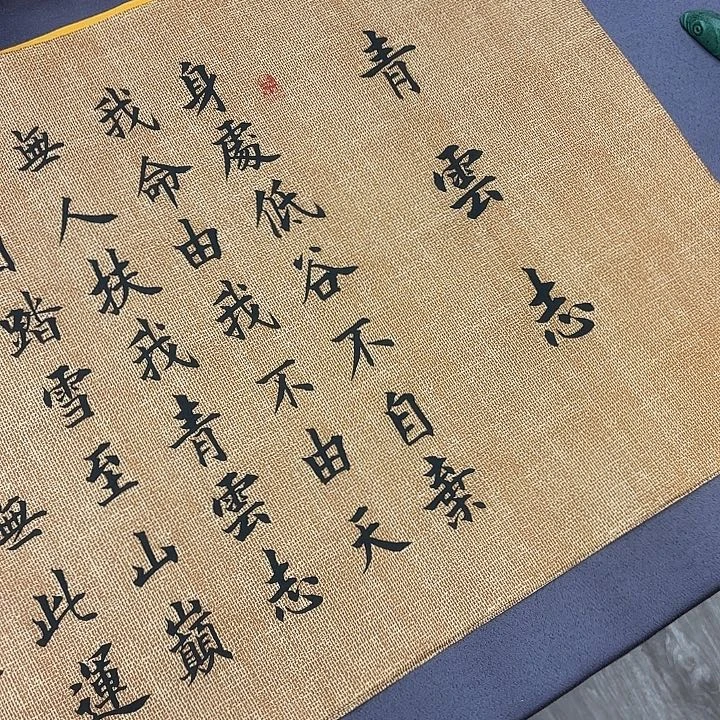 青雲志
身處低谷不自棄
我命由我不由天
無人扶我青雲志
踏雪至山巔
無此運